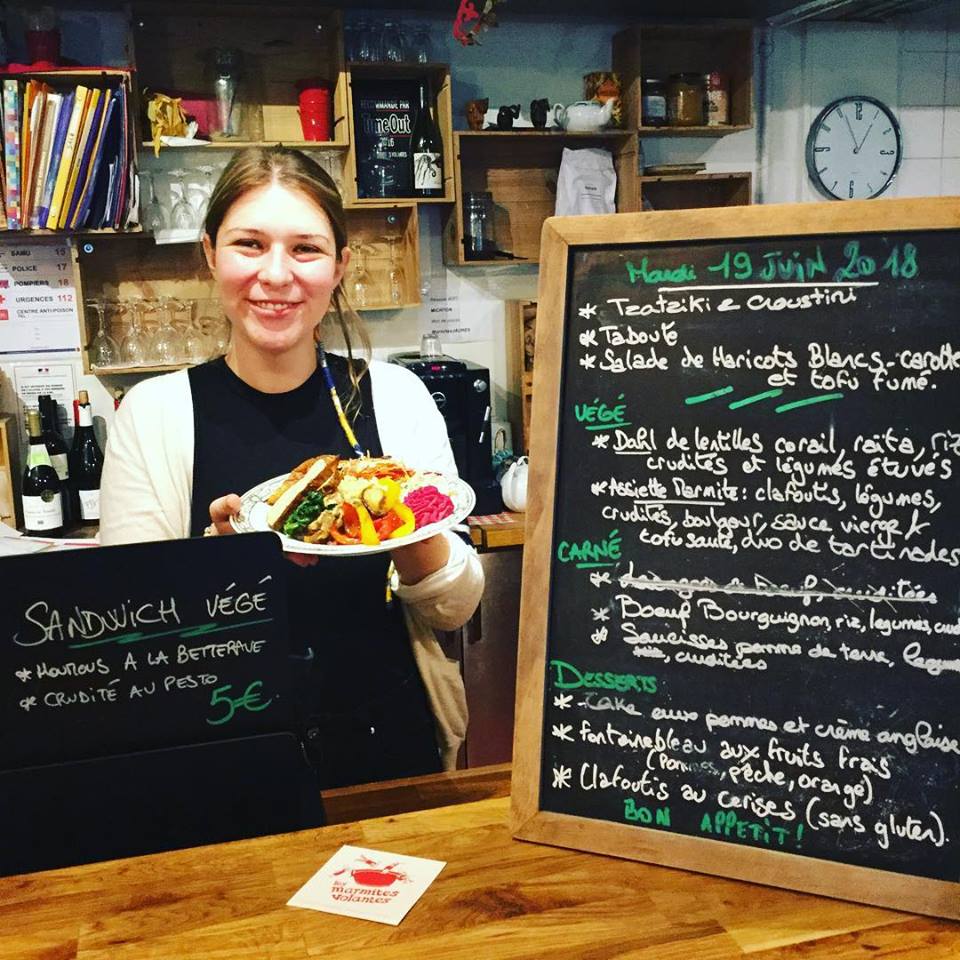 RECOMMANDÉ PAR
TimeOut
2016
SAMU 15
POLICE 17
POMPIERS 18
URGENCES 112
CENTRE ANTI-POISON
TEL
12
SANDWICH VÉGÉ
* HOUMOUS A LA BETTERAVE
* CRUDITÉ AU PESTO
5€
les
marmites
volantes
Mardi 19 JUIN 2018
* Tzatziki & Croustini
* Taboulé
* Salade de Haricots Blancs - carotte
et tofu fumé.
VÉGÉ
* Dahl de lentilles corail, raïta, riz
crudités et légumes étuvés
* Assiette Marmite : clafoutis, légumes,
crudités, boulgour, sauce vierge
tofu sauté, duo de tartinades
CARNÉ
* Boeuf Bourguignon, riz, légumes, crud
* Saucisses pomme de terre,
crudités
DESSERTS
* Cake aux pommes et crème anglaise
* Fontainebleau aux fruits frais
(Pommes, pêche, orange)
* Clafoutis au cerises (sans gluten).
BON APPETIT!